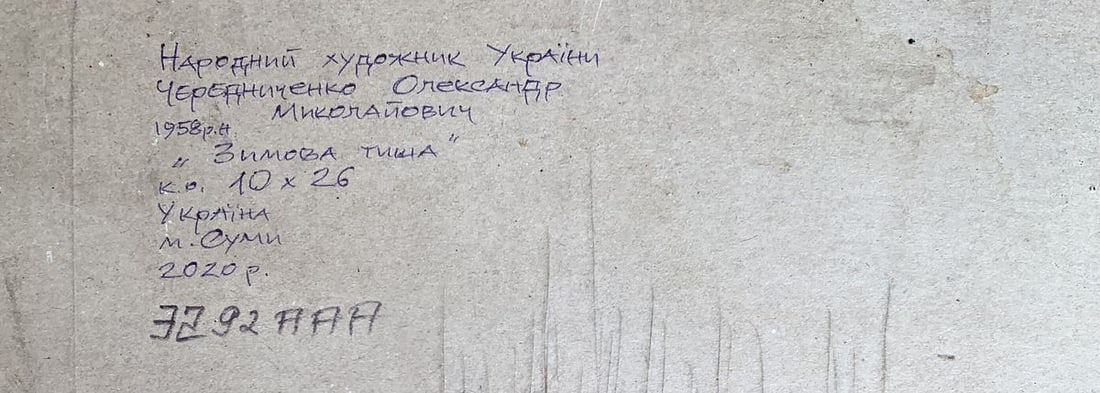 Народний художник України
Чередниченко Олександр
Миколайович
1958р.н.
„ Зимова тиша "
к.о. 10 х 26
Україна
м. Суми
2020 р.